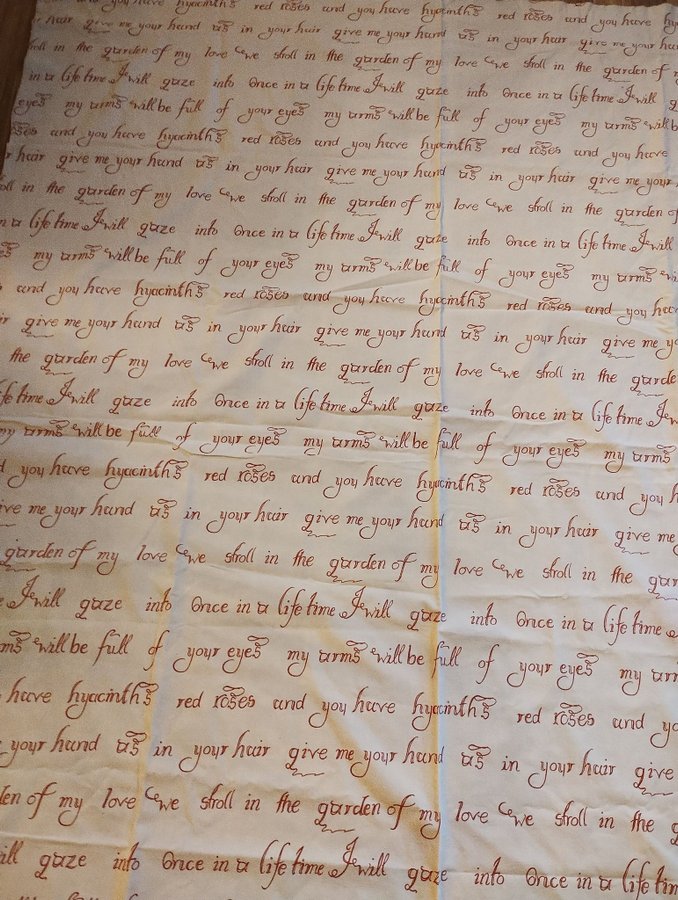 you have hyacinths red roses and you have hyacinths red roses and you have
hair give me your hand as in your hair give me your hand as in your hair give me your hair
stroll in the garden of my love we stroll in the garden of my love we stroll in the garden of
in a life time I will gaze into Once in a life time I will gaze into Once in a life time I will
eyes my arms will be full of your eyes my arms will be full of your eyes my arms will b
roses and you have hyacinths red roses and you have hyacinths red roses and you have
r hair give me your hand as in your hair give me your hand as in your hair give me your
oll in the garden of my love we stroll in the garden of my love we stroll in the garden of
n a life time I will gaze into Once in a life time I will gaze into Once in a life time I will
es my arms will be full of your eyes my arms will be full of your eyes my arms wi
s and you have hyacinths red roses and you have hyacinths red roses and you have
ir give me your hand as in your hair give me your hand as in your hair give me y
the garden of my love we stroll in the garden of my love we stroll in the garde
ife time I will gaze into Once in a life time I will gaze into Once in a life time I w
my arms will be full of your eyes my arms will be full of your eyes my arms
d you have hyacinths red roses and you have hyacinths red roses and you h
ive me your hand as in your hair give me your hand as in your hair give me
garden of my love we stroll in the garden of my love we stroll in the gar
e I will gaze into Once in a life time I will gaze into Once in a life time
ms will be full of your eyes my arms will be full of your eyes my arm
have hyacinths red roses and you have hyacinths red roses and yo
your hand as in your hair give me your hand as in your hair give
den of my love we stroll in the garden of my love we stroll in the g
ill gaze into Once in a life time I will gaze into Once in a life tim